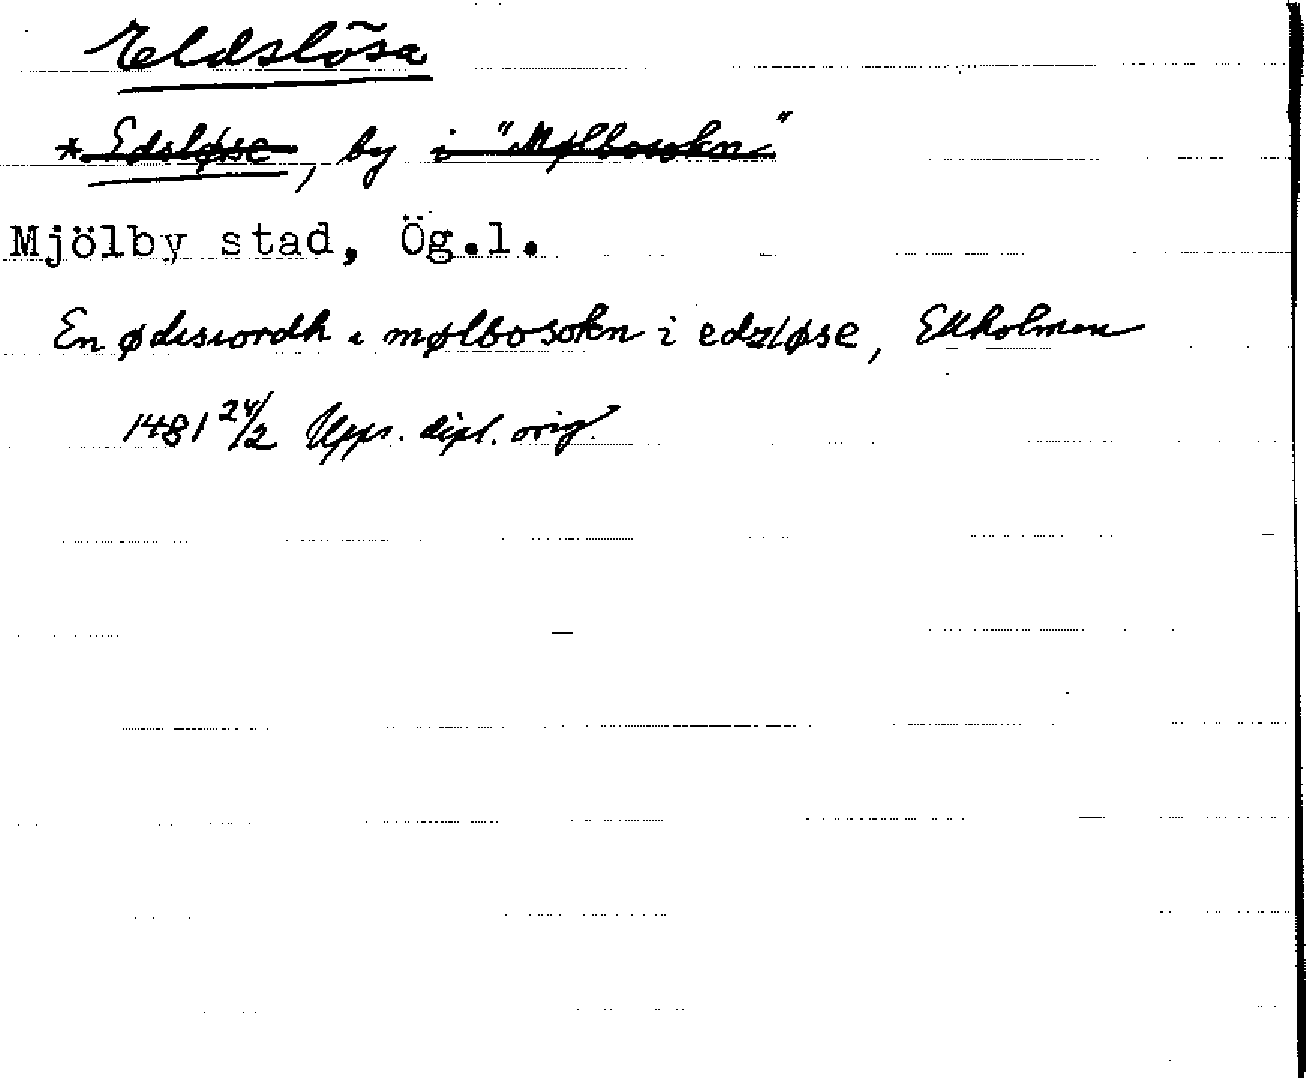 Eldslösa
* Edsløse, by i "Mølbosokn"
Mjölby stad, Ög.l.
En ødisiordh i mølbosokn i edzløse, Ekholmen
1481 24/2 Upps. dipl. orig.